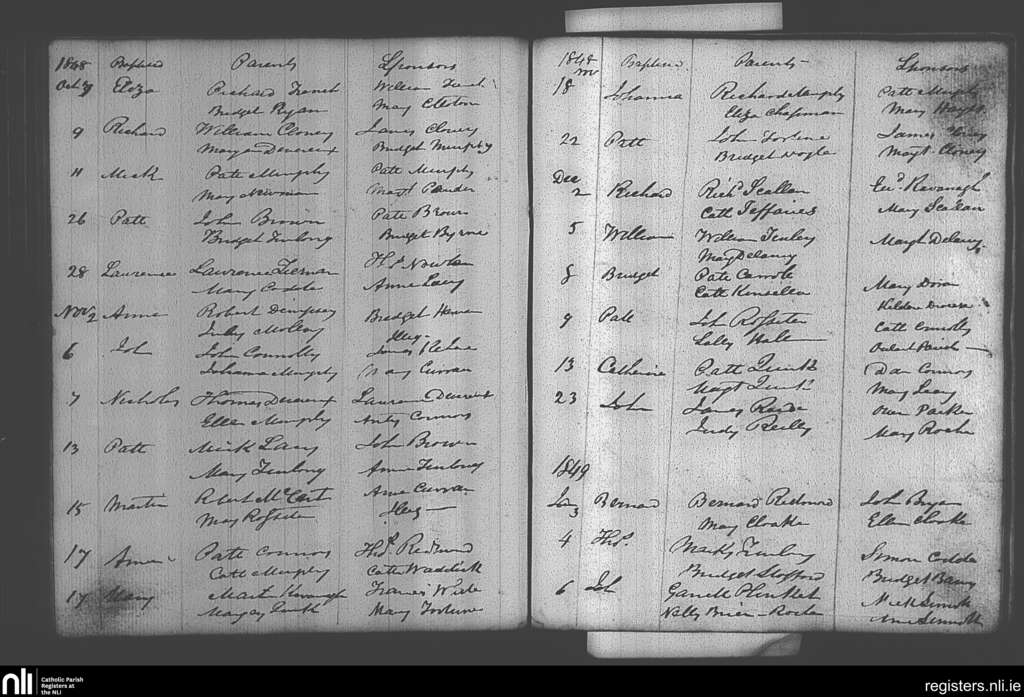 1848 Baptised Parents Sponsors
Oct 9 Eliza Richard French William French
Bridget Ryan Mary
9 Richard William Cloney James Cloney
Maryan Devereux Bridget Murphy
11 Mick Patt Murphy Patt Murphy
Mary Newman Margt
26 Patt John Brown Patt Brown
Bridget Furlong Bridget Byrne
28 Laurence Laurence Tiernan Ths Newton
Mary Codde Anne Lacy
Novr 2 Anne Robert Dempsey Bridget
Judy Molloy
6 John John Connolly James
Johanna Murphy Mary Curran
7 Nicholas Thomas Devereux Laurence Devereux
Ellen Murphy Anty Connors
13 Patt Mick Lacy John Brown
Mary Furlong Anne Furlong
15 Martin Robert McCart Anne Curran
May Rossiter
17 Anne Patt Connors Thos Redmond
Catt Murphy Catt Waddick
17 Mary Martin Kavanagh Francis
Margay Mary Fortune
1848 Baptised Parents Sponsors
Nov
18 Johanna Richard Murphy Patt Murphy
Eliza Chapman Mary
22 Patt John Fortune James
Bridget Doyle Margt Cloney
Dec
2 Richard Richd Scallan Kavanagh
Cath Jeffaries Mary Scallan
5 William William Finley Margt Delany
Mary Delany
8 Bridget Patt Carroll Mary
Catt Kinsella
9 Patt John Rossiter Catt Connolly
Sally
13 Catherine Patt Quirk Dan Connors
Margt Quirk Mary Lacy
23 John James Owen Parker
Judy Reilly Mary Roche
1849
Jan 3 Bernard Bernard Redmond John Bryan
Mary Cloake Ellen Cloake
4 Thos. Furlong Simon Codde
Bridget Stafford Bridget Barry
6 John Garrett Plunket Mick Sinnott
Nelly Brien - Roche Anne Sinnott
nli Catholic Parish
Registers at
the NLI
registers.nli.ie